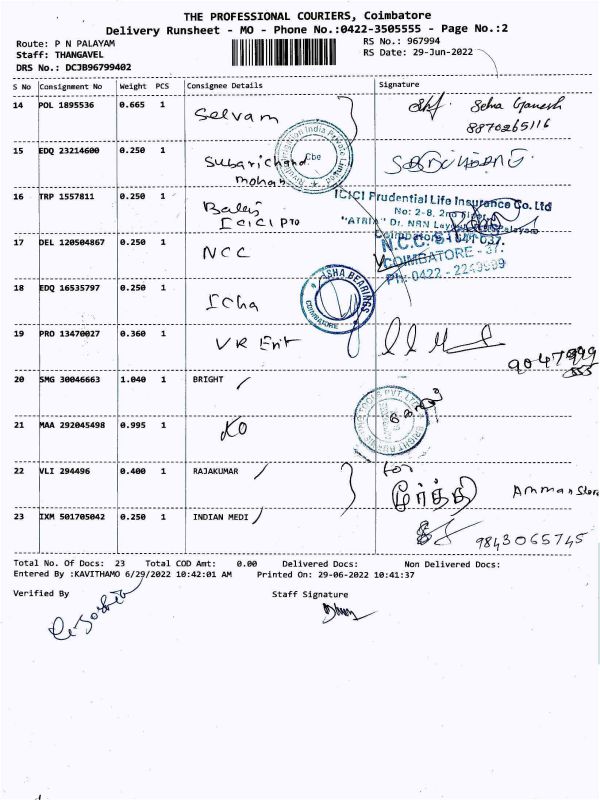 THE PROFESSIONAL COURIERS, Coimbatore
Delivery Runsheet - MO - Phone No.:0422-3505555 - Page No.:2
Route: P N PALAYAM
RS No.: 967994
Staff: THANGAVEL
RS Date: 29-Jun-2022
DRS No.: DCJB96799402
S No Consignment No Weight PCS Consignee Details Signature
14 POL 1895536 0.665 1 Selvam Selva Ganesh
8870265116
15 EDQ 23214600 0.250 1
Mohan
Cbe
16 TRP 1557811 0.250 1 Balaji
ICICI Pro
ICICI Prudential Life Insurance Co. Ltd
No: 2-8, 2nd Floor,
17 DEL 120504867 0.250 1 NCC
N.C.C.
COIMBATORE - 37.
Ph: 0422 -
18 EDQ 16535797 0.250 1 Icha
ASHA BEARINGS
COIMBATORE
19 PRO 13470027 0.360 1 VR Ent
9047999
555
20 SMG 30046663 1.040 1 BRIGHT
21 MAA 292045498 0.995 1 KO
22 VLI 294496 0.400 1 RAJAKUMAR
for
மூர்த்தி
Amman Store
23 IXM 501705042 0.250 1 INDIAN MEDI
9843065745
Total No. Of Docs: 23 Total COD Amt: 0.00 Delivered Docs: Non Delivered Docs:
Entered By :KAVITHAMO 6/29/2022 10:42:01 AM Printed On: 29-06-2022 10:41:37
Verified By Staff Signature